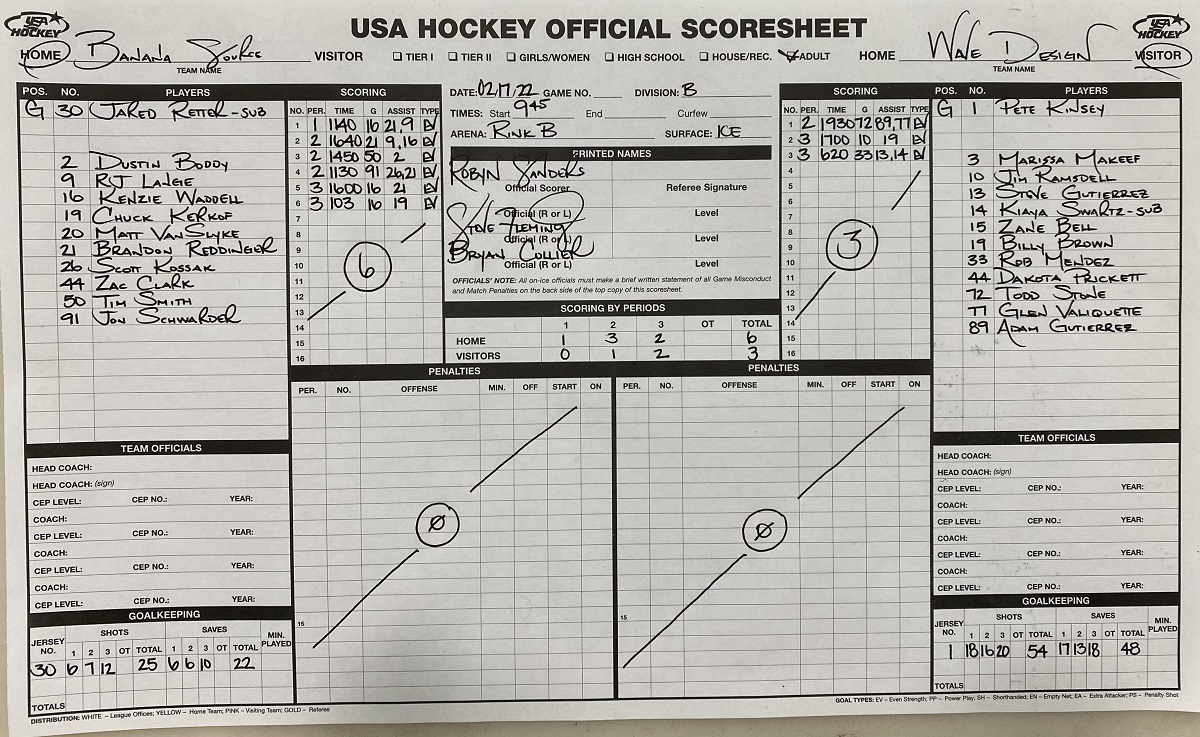 USA HOCKEY
USA HOCKEY OFFICIAL SCORESHEET
USA HOCKEY
HOME Banana Source VISITOR
TEAM NAME
TIER I TIER II GIRLS/WOMEN HIGH SCHOOL HOUSE/REC. ADULT
HOME Wave Design VISITOR
TEAM NAME
POS. NO. PLAYERS
G 30 JARED RETTER-SUB
2 DUSTIN BODDY
9 RJ LANGE
16 KENZIE WADDELL
19 CHUCK KERKOF
20 MATT VANSLYKE
21 BRANDON REDDINGER
26 SCOTT KOSSAK
44 ZAC CLARK
50 TIM SMITH
91 JON SCHWARDER
SCORING
NO. PER. TIME G ASSIST TYPE
1 1 1140 16 21,9 EV
2 2 1640 21 9,16 EV
3 2 1450 50 2 EV
4 2 1130 91 26,21 EV
5 3 1600 16 21 EV
6 3 103 16 19 EV
7
8
9
10
11
12
13
14
15
16
6
DATE: 02/17/22 GAME NO. DIVISION: B
TIMES: Start 945 End Curfew
ARENA: RINK B SURFACE: ICE
PRINTED NAMES
ROBYN SANDERS
Official Scorer Referee Signature
STEVE FLEMING
Official (R or L) Level
Official (R or L) Level
BRYAN COLLIER
Official (R or L) Level
OFFICIALS' NOTE: All on-ice officials must make a brief written statement of all Game Misconduct
and Match Penalties on the back side of the top copy of this scoresheet.
SCORING BY PERIODS
1 2 3 OT TOTAL
HOME 1 3 2 6
VISITORS 0 1 2 3
SCORING
NO. PER. TIME G ASSIST TYPE
1 2 1930 72 89,77 EV
2 3 1700 10 19 EV
3 3 620 33 13,14 EV
4
5
6
7
8
9
10
11
12
13
14
15
16
3
POS. NO. PLAYERS
G 1 PETE KINSEY
3 MARISSA MAKEEF
10 JIM RAMSDELL
13 STEVE GUTIERREZ
14 KIAYA SWARTZ-SUB
15 ZANE BELL
19 BILLY BROWN
33 ROB MENDEZ
44 DAKOTA PRICKETT
72 TODD STONE
77 GLEN VALIQUETTE
89 ADAM GUTIERREZ
PENALTIES
PER. NO. OFFENSE MIN. OFF START ON
Ø
15
PENALTIES
PER. NO. OFFENSE MIN. OFF START ON
Ø
15
TEAM OFFICIALS
HEAD COACH:
HEAD COACH: (sign)
CEP LEVEL: CEP NO.: YEAR:
COACH:
CEP LEVEL: CEP NO.: YEAR:
COACH:
CEP LEVEL: CEP NO.: YEAR:
COACH:
CEP LEVEL: CEP NO.: YEAR:
GOALKEEPING
JERSEY NO. SHOTS SAVES MIN. PLAYED
1 2 3 OT TOTAL 1 2 3 OT TOTAL
30 6 7 12 25 6 6 10 22
TOTALS
TEAM OFFICIALS
HEAD COACH:
HEAD COACH: (sign)
CEP LEVEL: CEP NO.: YEAR:
COACH:
CEP LEVEL: CEP NO.: YEAR:
COACH:
CEP LEVEL: CEP NO.: YEAR:
COACH:
CEP LEVEL: CEP NO.: YEAR:
GOALKEEPING
JERSEY NO. SHOTS SAVES MIN. PLAYED
1 2 3 OT TOTAL 1 2 3 OT TOTAL
1 18 16 20 54 17 13 18 48
TOTALS
DISTRIBUTION: WHITE – League Offices; YELLOW – Home Team; PINK – Visiting Team; GOLD – Referee
GOAL TYPES: EV – Even Strength; PP – Power Play; SH – Shorthanded; EN – Empty Net; EA – Extra Attacker; PS – Penalty Shot